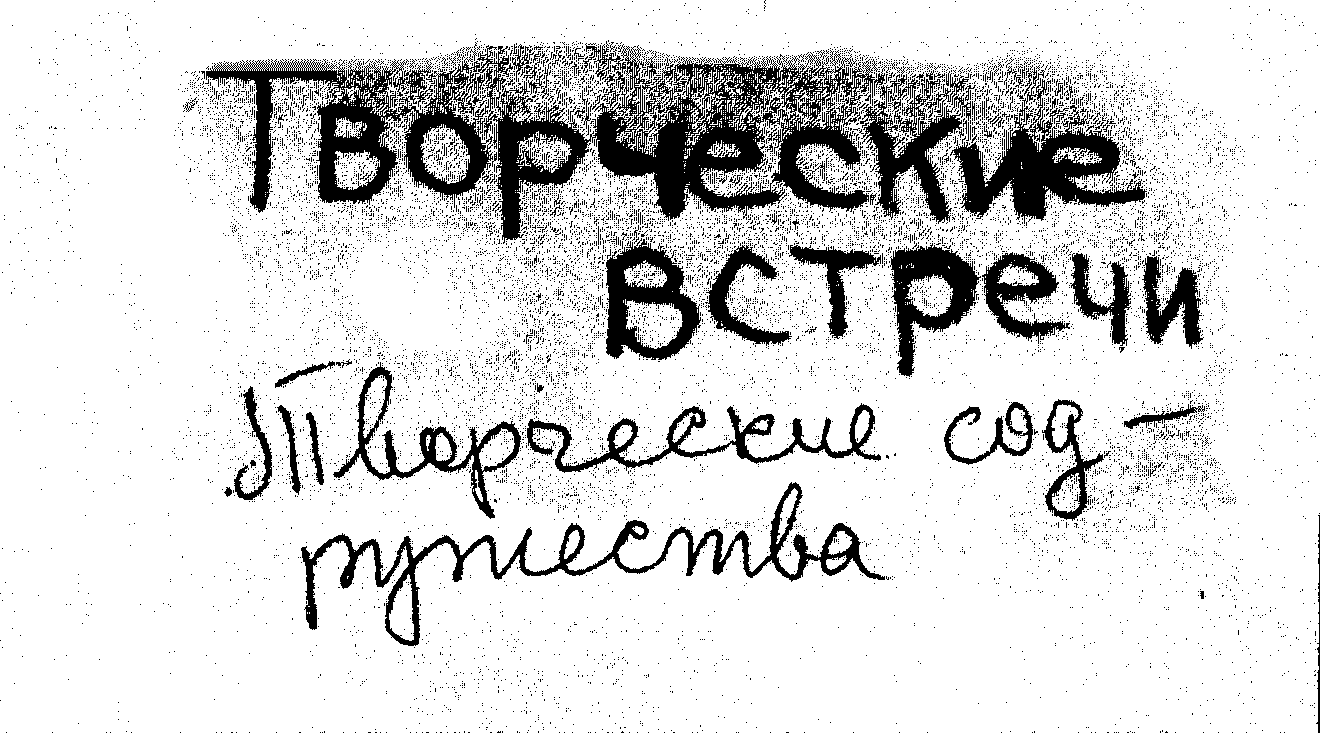 Творческие
встречи
Творческие сод-
ружества